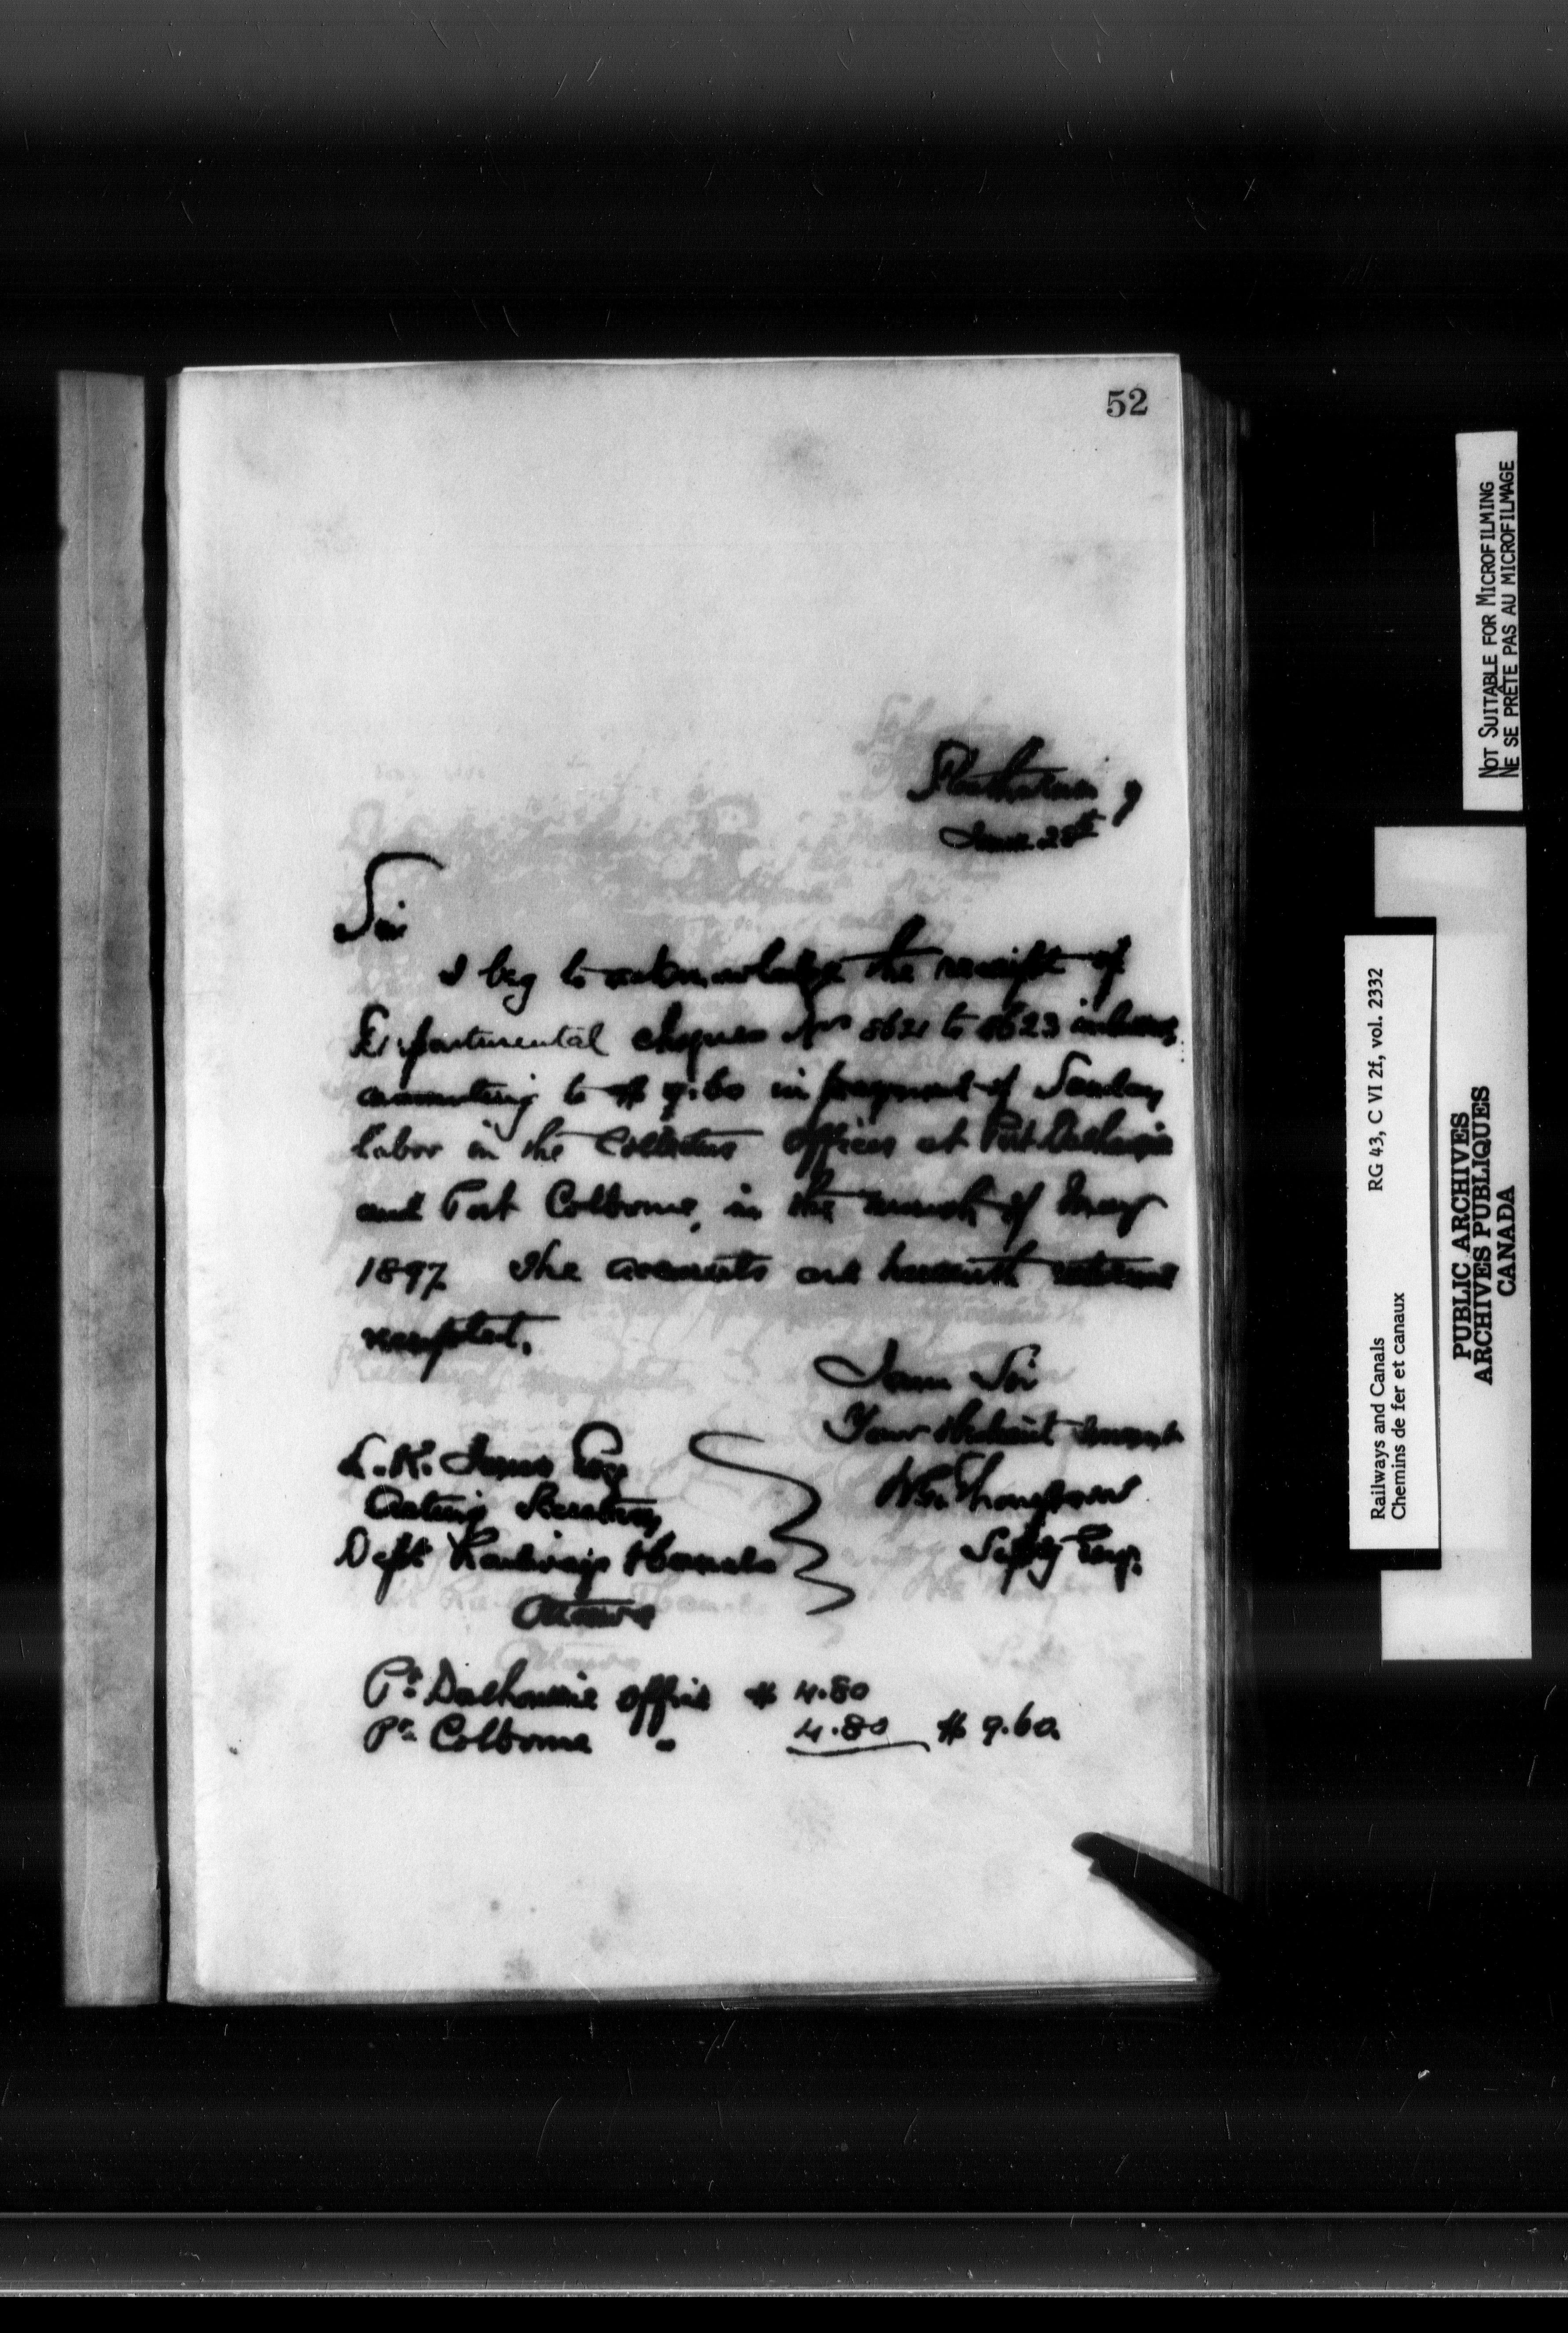 52
St Catharines
June 28th
Sir
I beg to acknowledge the receipt of
Departmental cheques Nos 8621 to 8623 inclusive
amounting to $ 9.60 in payment of Sunday
labor in the Collectors Offices at Port Dalhousie
and Port Colborne, in the month of May
1897 The accounts are herewith returned
receipted.
I am Sir
Your Obedient Servant
Wm Thompson
Supty Engr.
L. K. Jones Esq
Acting Secretary
Dept Railways & Canals
Ottawa
Pt Dalhousie office $ 4.80
Pt Colborne " 4.80 $ 9.60
NOT SUITABLE FOR MICROFILMING
NE SE PRÊTE PAS AU MICROFILMAGE
RG 43, C VI 2f, vol. 2332
Railways and Canals
Chemins de fer et canaux
PUBLIC ARCHIVES
ARCHIVES PUBLIQUES
CANADA